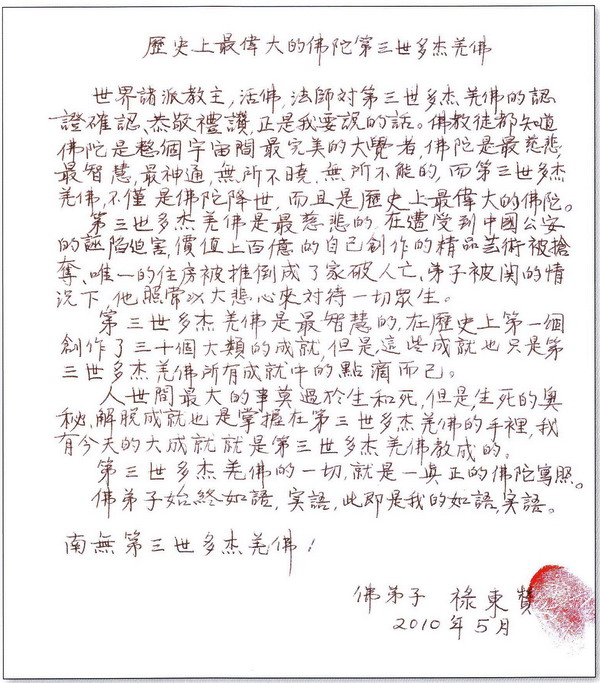 歷史上最偉大的佛陀第三世多杰羌佛
世界諸派教主,活佛,法師対第三世多杰羌佛的認
證確認、恭敬禮讚,正是我要說的話。佛教徒都知道
佛陀是整個宇宙間最完美的大覺者,佛陀是最慈悲,
最智慧,最神通,無所不曉,無所不能的,而第三世多杰
羌佛,不僅是佛陀降世,而且是歷史上最偉大的佛陀。
第三世多杰羌佛是最慈悲的,在遭受到中國公安
的誣陷迫害,價值上百億的自己創作的精品芸術被搶
奪、唯一的住房被推倒成了家破人亡,弟子被関的情
況下,他照常以大悲心來対待一切眾生。
第三世多杰羌佛是最智慧的,在歷史上第一個
創作了三十個大類的成就,但是,這些成就也只是第
三世多杰羌佛所有成就中的點滴而己。
人世間最大的事莫過於生和死,但是,生死的奥
秘,解脫成就也是掌握在第三世多杰羌佛的手裡,我
有今天的大成就就是第三世多杰羌佛教成的。
第三世多杰羌佛的一切,就是一真正的佛陀寫照。
佛弟子始終如語,実語,此即是我的如語,実語。
南無第三世多杰羌佛!
佛弟子 祿東贊
2010年5月